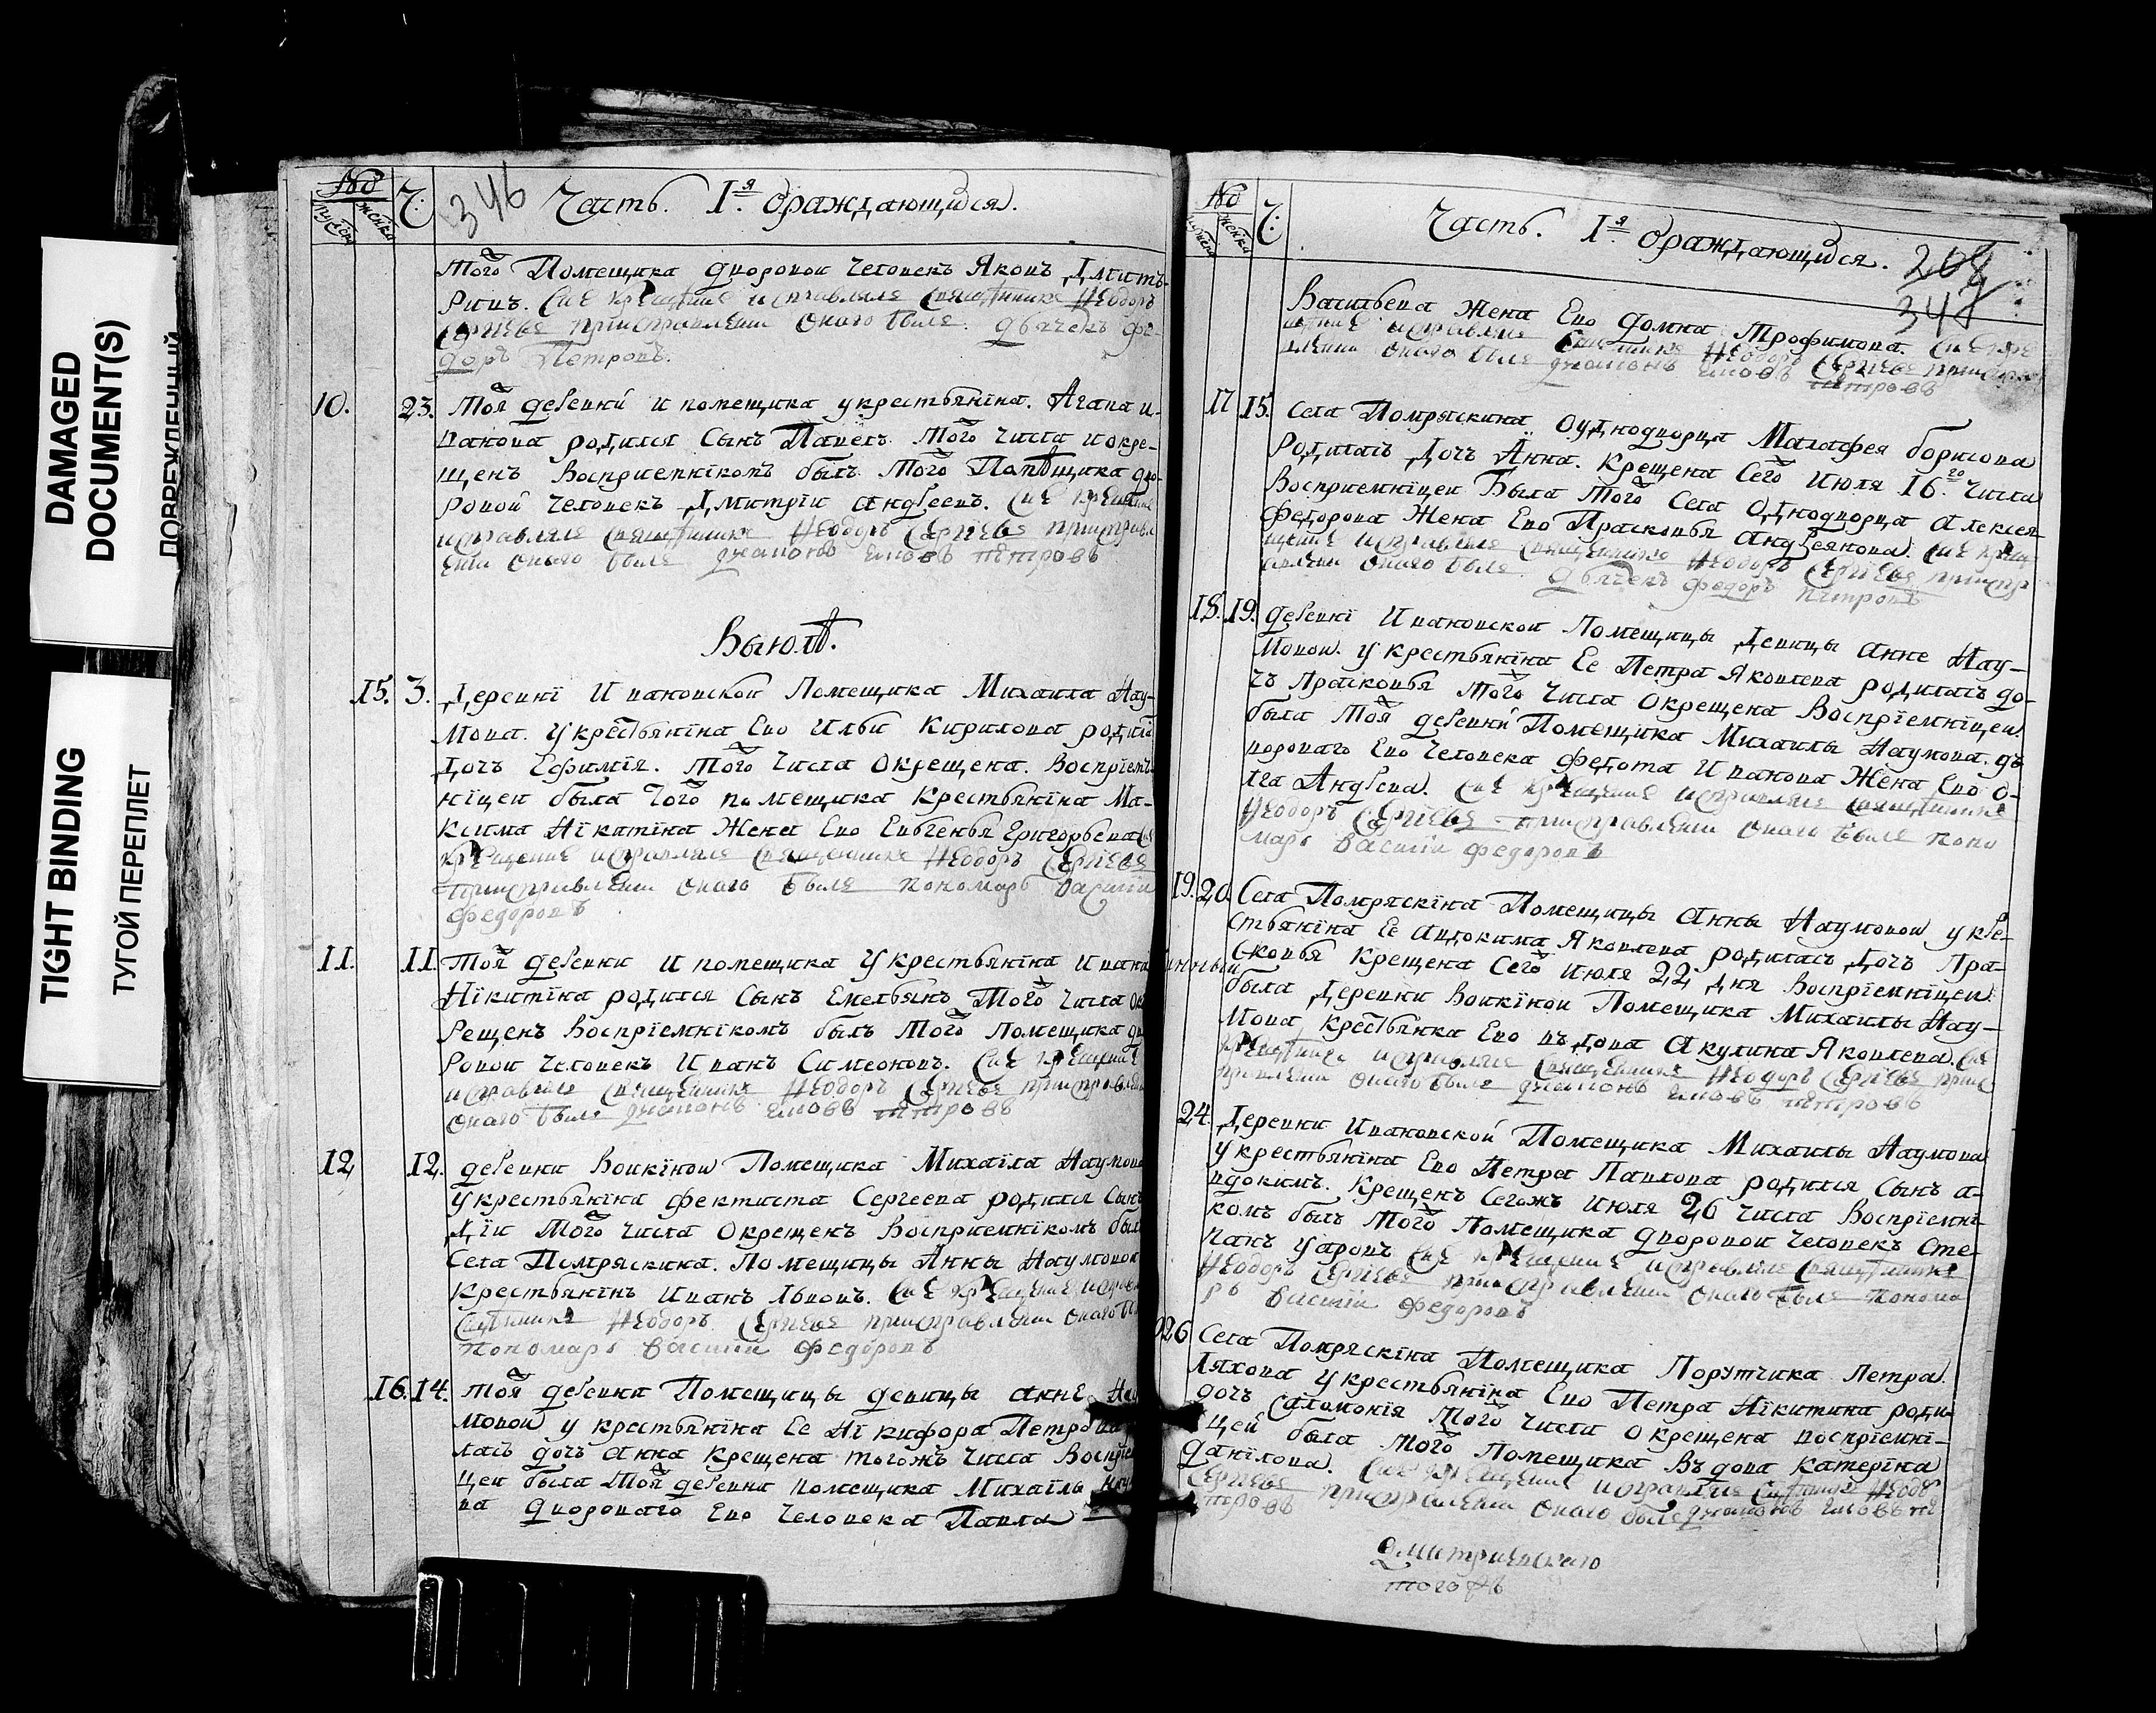 DAMAGED
DOCUMENT(S)
TIGHT BINDING
ТУГОЙ ПЕРЕПЛЕТ
346
Часть. Iя. ораждающихся.
того Помещика дворовой человекъ Яковъ Дмит-
ричъ. Сие крещение исправляле священнике Неодоръ
Сергиевъ приисправлении онаго былъ дьячекъ фе-
доръ Петровъ.
10. 23. Тоя деревни и помещика укрестьянiна. Агапа и-
ванова родился Сынъ Павелъ. Того числа иокре-
щенъ Восприемнiкомъ былъ Того Помѣщика дво-
ровой человекъ Дмитрiи андреевъ. Сие крещение
исправляле священнике Неодоръ Сергиевъ приисправл
ении онаго былъ диаконъ петровъ
Выюлѣ.
15. 3. Деревнi Ивановской Помещика Михаила Нау-
мова. укрестьянiна Ево Ильи Кирилова родил
Дочь Ефимiя. Того Числа Окрещена. Воспрiем-
нiцеи была Того помещика крестьянiна Ма-
ксима Нiкитiна Жена Ево Евгенья Григорьева
крещение исправляле священнике Неодоръ Сергиевъ
приисправлении онаго былъ пономарь василии
Федоровъ
11. 11. Тоя деревни и помещика Укрестьянiна Ивана
Нiкитiна родился Сынъ Емельянъ Того Числа ок
рещенъ Воспрiемнiкомъ былъ Того Помещика дво
ровои человекъ Иванъ Симеоновъ. Сие крещение
исправляле священнике Неодоръ Сергиевъ приисправлении
онаго былъ диаконъ петровъ
12 12. деревни Воикiнои Помещика Михаiла Наумова
укрестьянiна фектиста Сергеева родился Сынъ
Того числа Окрещенъ Восприемнiкомъ был
Села Помряскина. Помещицы Анны Наумовои
крестьянiнъ Иванъ Львовъ. Сие крещение исправ
Священнике Неодоръ Сергиевъ приисправлении онаго бы
пономарь василии федоровъ
16. 14. тоя деревни Помещицы девицы анне Нау
мовои у крестьянiна Ее Нiкифора Петрова
лась дочь анна крещена тогожъ числа Воспрiе
цеи была Тоя деревни помещика Михаiлы Нау
ва дворового Ево человека Павла
Часть. Iя. ораждающихся.
268
347
Васильева Жена Ево домна Трофимова. Сие кре
щение исправляле Священнике Неодоръ Сергиевъ приисправ
влении онаго былъ диаконъ петровъ
17 15. Села Помряскина Оуднодворца Малафея борисова
Родилась Дочь Анна. Крещена Сего Июля 16го Числа
Восприемнiцеи Была Того Села Однодворца Алексея
Федорова Жена Ево Прасковья андреянова. Сие крещ
щение исправляле Священнике Неодоръ Сергиевъ приисправ
влении онаго былъ. Дьячекъ федоръ петровъ
18. 19. деревнi Ивановской Помещицы Девицы анне Нау-
мовои. укрестьянiна Ее Петра Яковлева родилась до-
чь Прасковья Того Числа Окрещена Воспрiемнiцеи
была Тоя деревни Помещика Михаилы Наумова. дв
воровагo Ево человека федота Иванова Жена Ево О-
лга Андреева. Сие крещение исправляле священнике
Неодоръ Сергиевъ приисправлении онаго былъ поно
марь василии федоровъ
19. 20. Села Помряскiна Помещицы Анны Наумовои укре-
стьянiна Ее авдокима Яковлева родилась Дочь Пра-
сковья Крещена Сего Июля 22 дня Воспрiемнiцеи
была Деревни Воикiнои Помещика Михаилы Нау-
мова крестьянка Ево въдова Акулина Яковлева. Сие
крещение исправляле священнике Неодоръ Сергиевъ приис
правлении онаго былъ диаконъ петровъ
24. Деревни Ивановской Помещика Михаилы Наумова
укрестьянiна Ево Петра Павлова родился Сынъ а-
вдокимъ. Крещенъ Сегожъ Июля 26 числа Воспрiемнi-
комъ былъ Того Помещика дворовои человекъ Сте-
панъ уаровъ Сие крещение исправляле священнике
Неодоръ Сергиевъ приисправлении онаго былъ понома
рь василии федоровъ
26 Села Помряскiна Помещика Порутчика Петра
Ляхова укрестьянiна Ево Петра Нiкитина роди
дочь Саломонiя Того Числа Окрещена воспрiемнi-
цеи была Того Помещика Въдова катерiна
данiлова. Сие крещение исправляле Священнике Неодоръ
Сергиевъ приисправлении онаго былъ диаконъ пе
тровъ